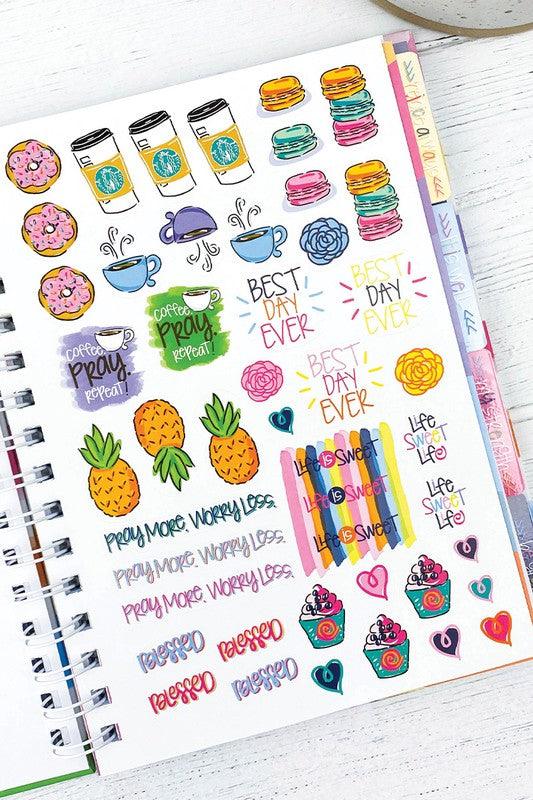 BEST
DAY
EVER
BEST
DAY
EVER
Coffee.
PRAY.
REPEAT!
Coffee.
PRAY.
REPEAT!
BEST
DAY
EVER
Life
SWEET
Life
Life is SweeT
Life is SweeT
Life is SweeT
Life
SWEET
Life
PRAY MORE. WORRY LESS.
PRAY MORE. WORRY LESS.
PRAY MORE. WORRY LESS.
BLessed
BLessed
BLessed
BLessed